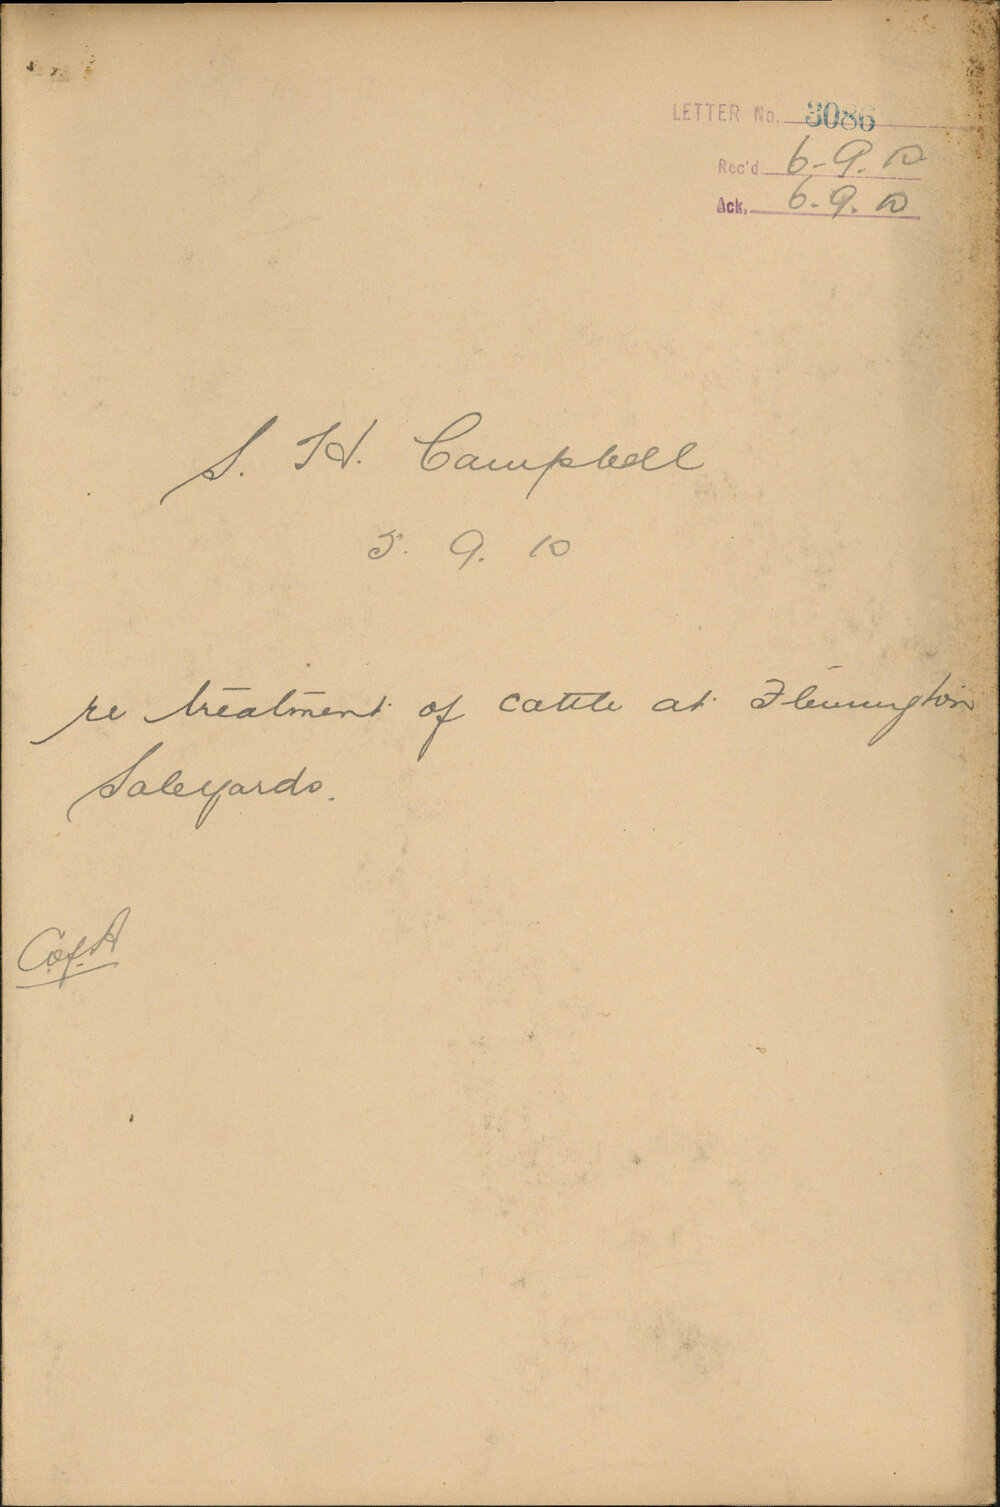 LETTER No. 3086
Rec'd 6-9.10
Ack, 6.9.10
S. H. Campbell
5. 9. 10
re treatment of cattle at Flemington
Saleyards.
C.of.A